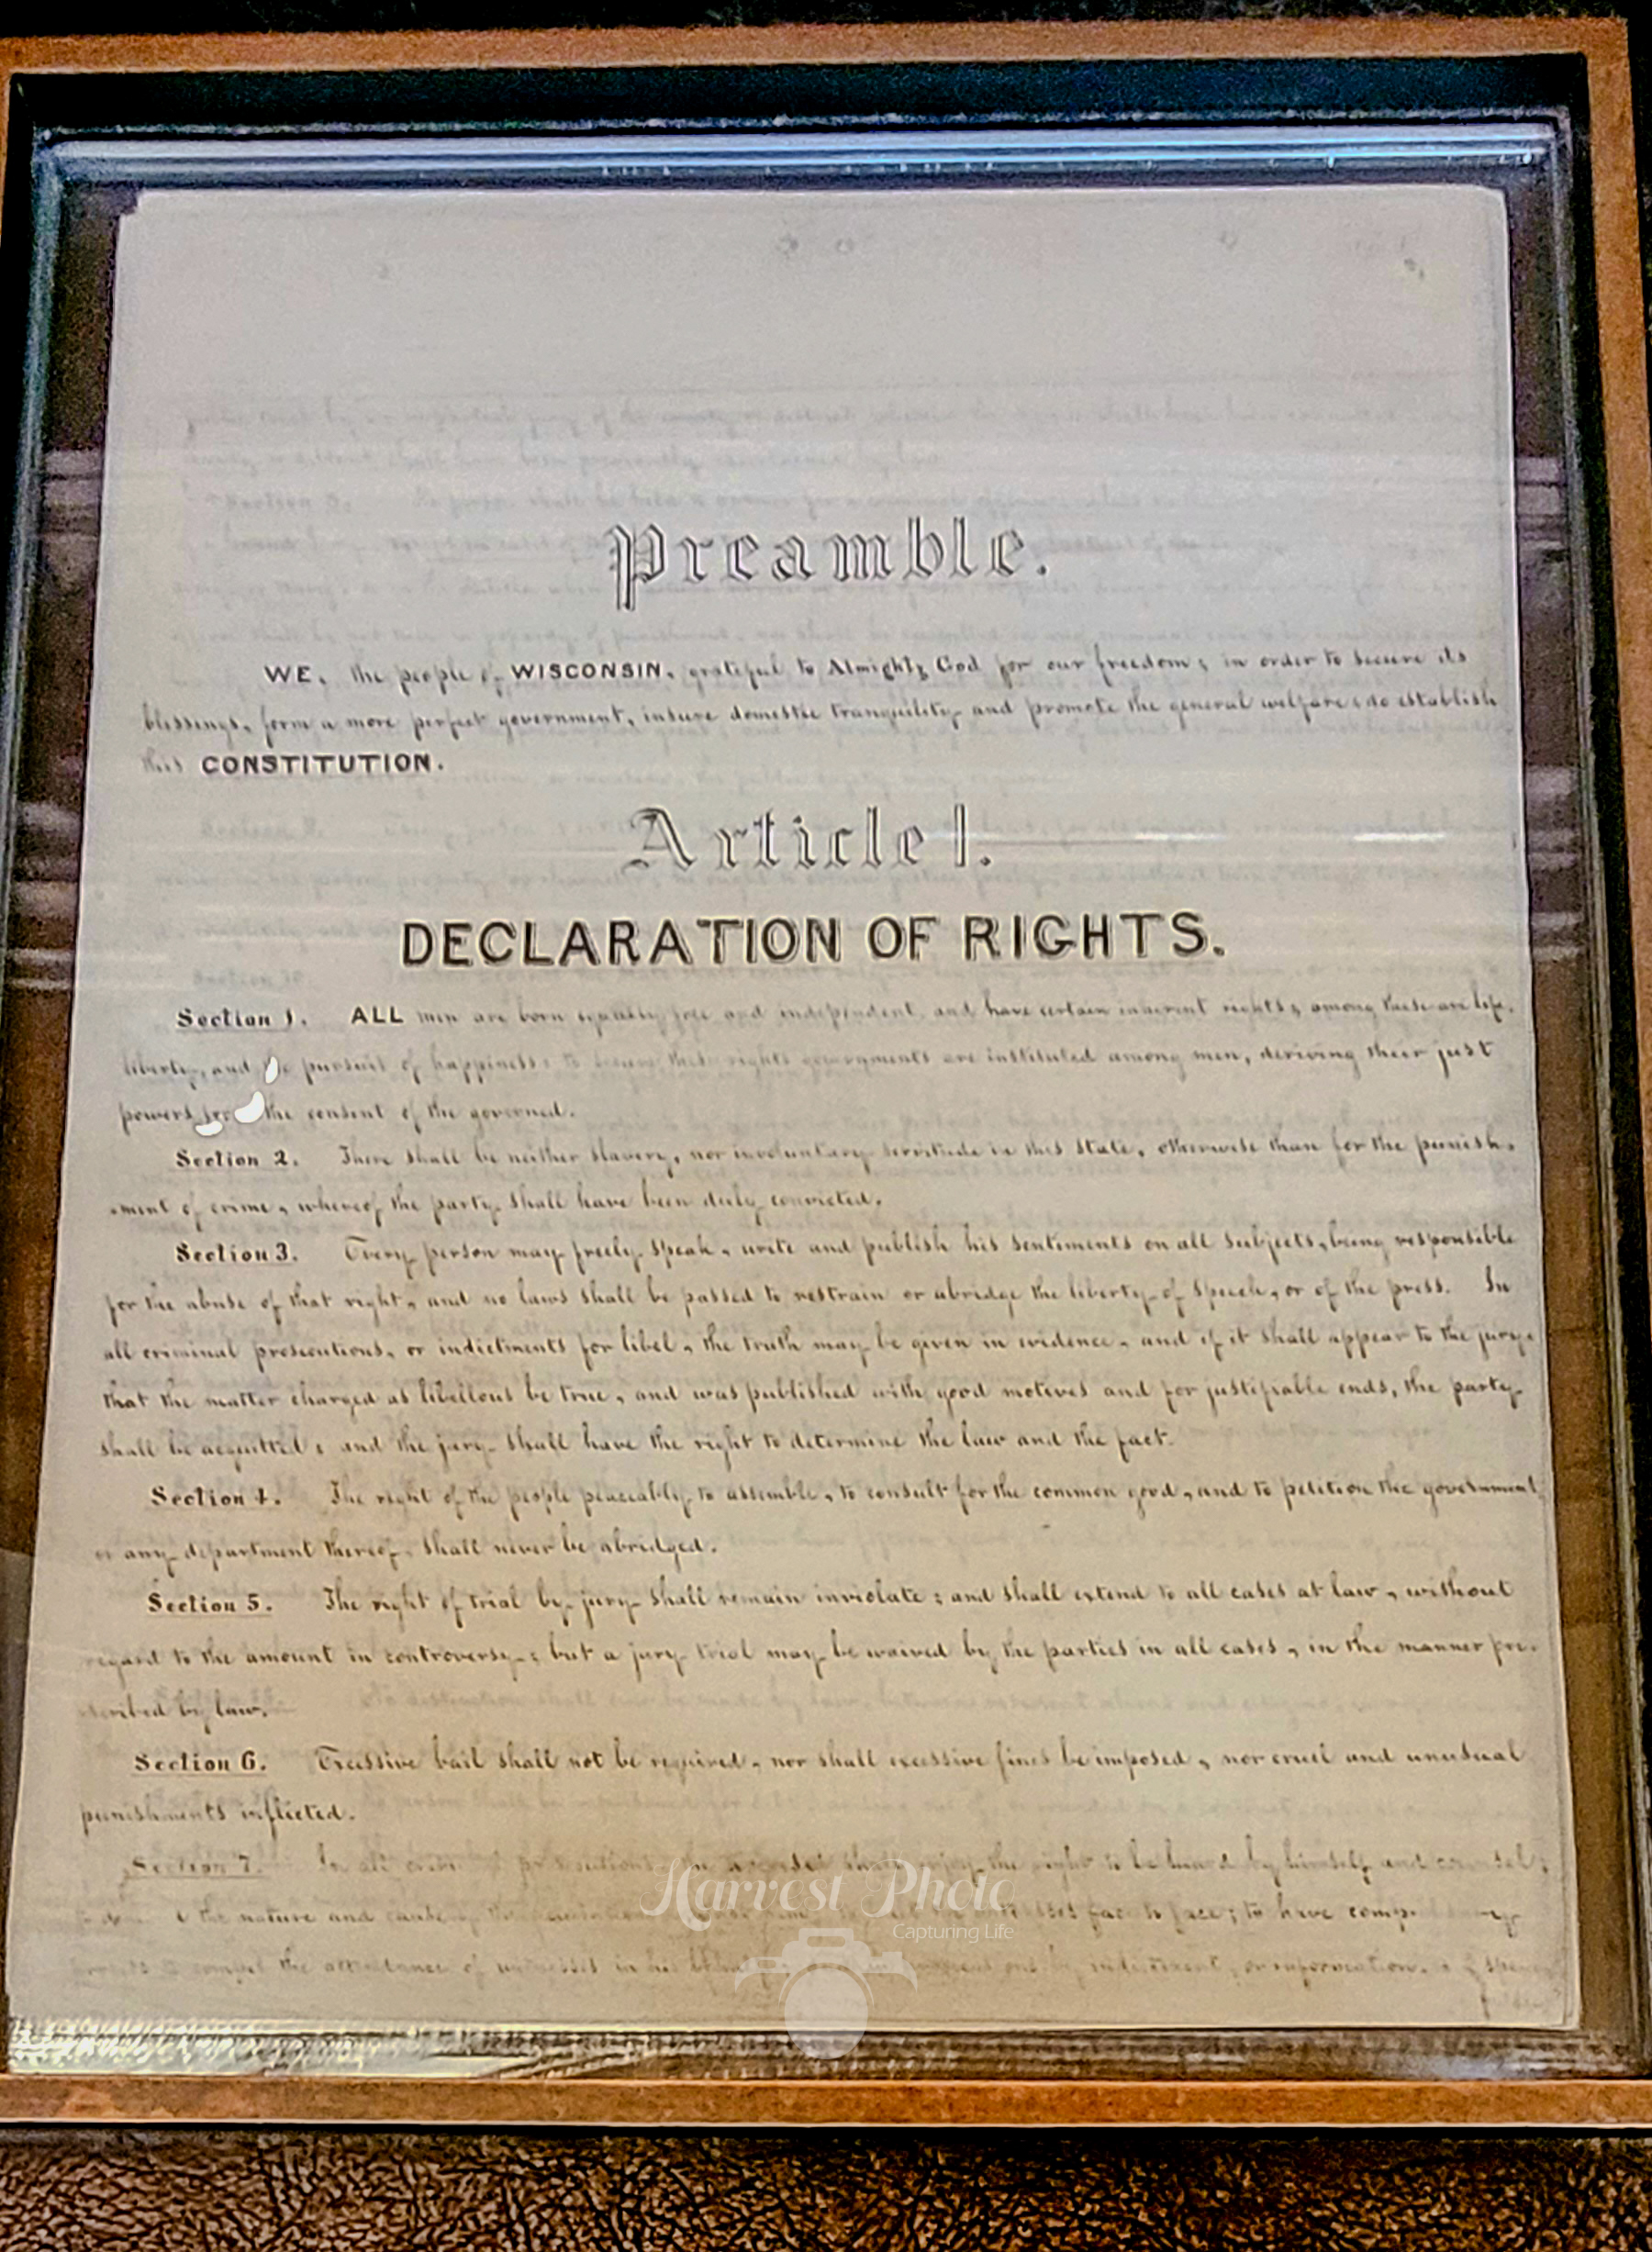 Preamble.
WE, the people of WISCONSIN, grateful to Almighty God for our freedom; in order to secure its
blessings, form a more perfect government, insure domestic tranquility and promote the general welfare; do establish
this CONSTITUTION.
Article I.
DECLARATION OF RIGHTS.
Section 1. ALL men are born equally free and independent, and have certain inherent rights; among these are life,
liberty, and pursuit of happiness: to secure these rights governments are instituted among men, deriving their just
powers the consent of the governed.
Section 2. There shall be neither slavery, nor involuntary servitude in this State, otherwise than for the punish-
-ment of crime, whereof the party shall have been duly convicted.
Section 3. Every person may freely speak, write and publish his sentiments on all subjects, being responsible
for the abuse of that right, and no laws shall be passed to restrain or abridge the liberty of speech, or of the press. In
all criminal prosecutions, or indictments for libel, the truth may be given in evidence, and if it shall appear to the jury
that the matter charged as libellous be true, and was published with good motives and for justifiable ends, the party
shall be acquitted; and the jury shall have the right to determine the law and the fact.
Section 4. The right of the people peaceably to assemble, to consult for the common good, and to petition the government,
or any department thereof, shall never be abridged.
Section 5. The right of trial by jury shall remain inviolate; and shall extend to all cases at law, without
regard to the amount in controversy; but a jury trial may be waived by the parties in all cases, in the manner pre-
scribed by law.
Section 6. Excessive bail shall not be required, nor shall excessive fines be imposed, nor cruel and unusual
punishments inflicted.
Section 7. In all prosecutions the accused shall enjoy the right to be heard by himself and counsel;
the nature and cause face to face; to have
to compel the attendance of witnesses in his by indictment, or information,
Harvest Photo
Capturing Life